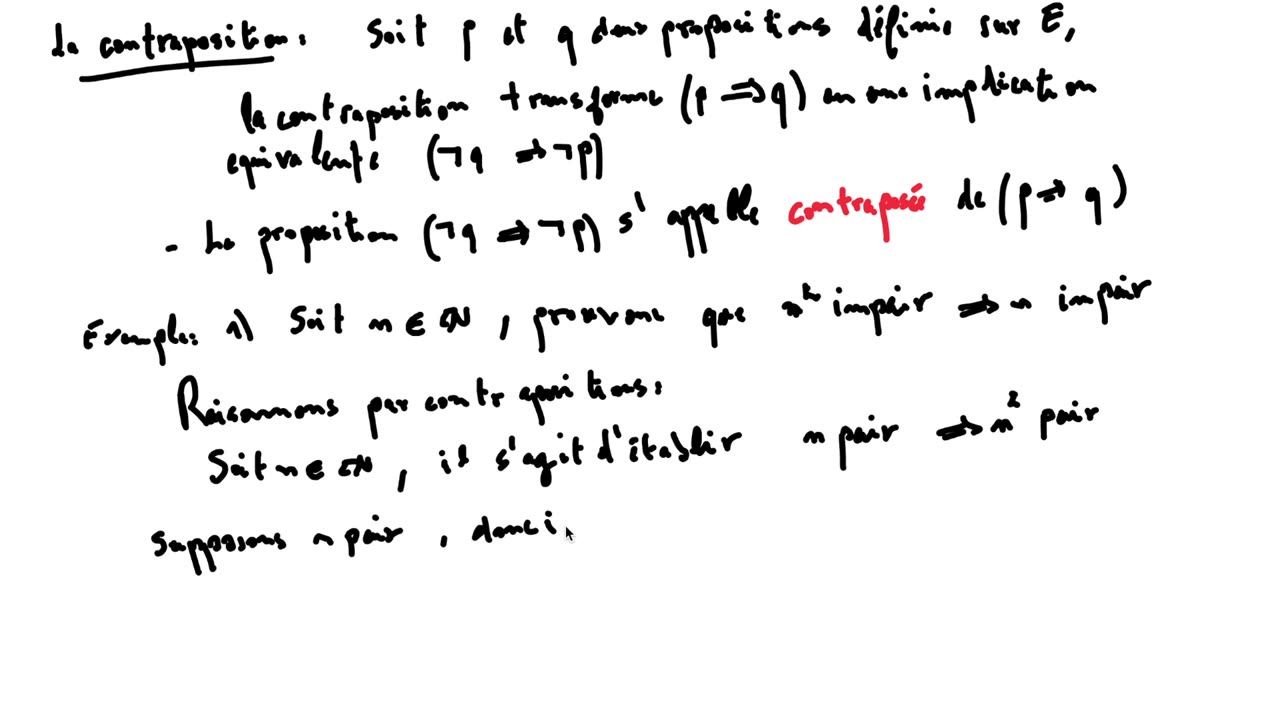 La contraposition : Soit p et q deux propositions définie sur E,
la contraposition transforme (p ⇒ q) en une implication
equivalente (¬q ⇒ ¬p)
- La proposition (¬q ⇒ ¬p) s'appelle contraposée de (p ⇒ q)
Exemple: 1) Soit n ∈ ℕ, prouvons que n² impair ⇒ n impair
Raisonnons par contrapositions :
Soit n ∈ ℕ, il s'agit d'établir n pair ⇒ n² pair
Supposons n pair, donc i